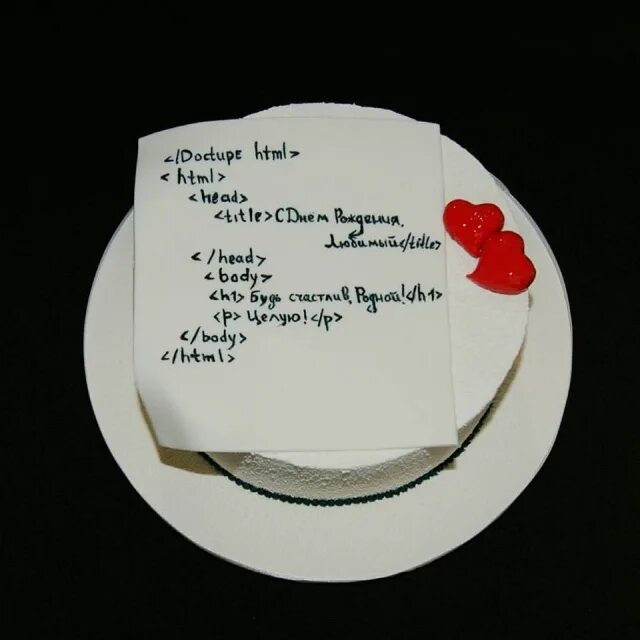 </Doctype html>
<html>
<head>
<title>С Днём Рождения,
Любимый</title>
</head>
<body>
<h1>Будь счастлив, Родной!</h1>
<p>Целую!</p>
</body>
</html>